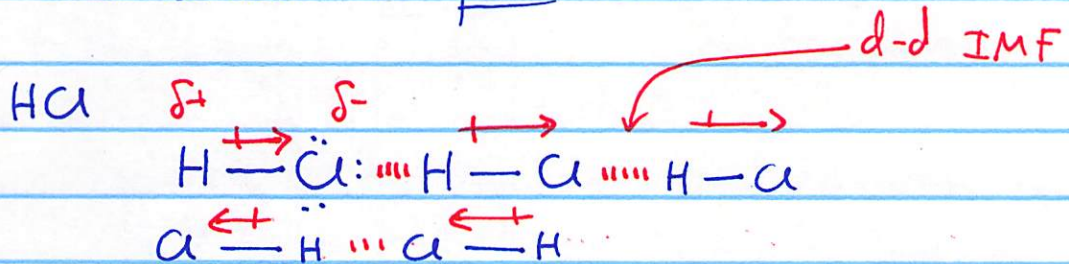 d-d IMF
HCl δ+ δ-
H — Cl: ''''' H — Cl ''''' H — Cl
Cl — H ''' Cl — H